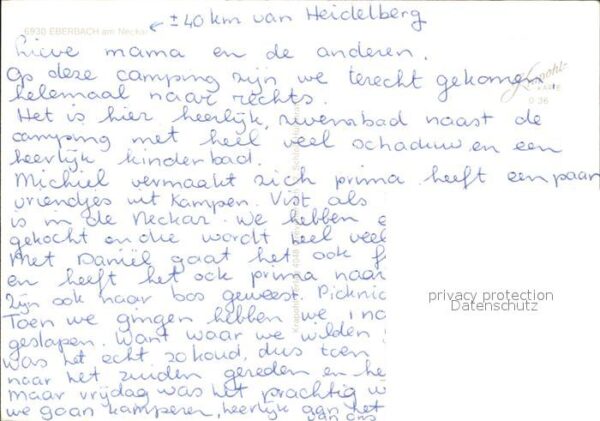 ± 40 km van Heidelberg
6930 EBERBACH am Neckar
Lieve mama en de anderen.
Op deze camping zijn we terecht gekomen
helemaal naar rechts.
Het is hier heerlijk, rivierbad naast de
camping met heel veel schaduw en een
heerlijk kinderbad.
Michiel vermaakt zich prima heeft een paar
vriendjes uit Kampen. Vist als
is in de Neckar. We hebben e
gekocht en die wordt heel veel
Met Daniël gaat het ook f
en heeft het ook prima naar
Zijn ook naar bos geweest. Picknic
Toen we gingen hebben we 1 no
geslapen. Want waar we wilden
was het echt zo koud, dus toen
naar het zuiden gereden en he
Maar vrijdag was het prachtig w
we gaan kamperen, heerlijk aan het
van ons
Krapohl-
KARTE
0 36
privacy protection
Datenschutz